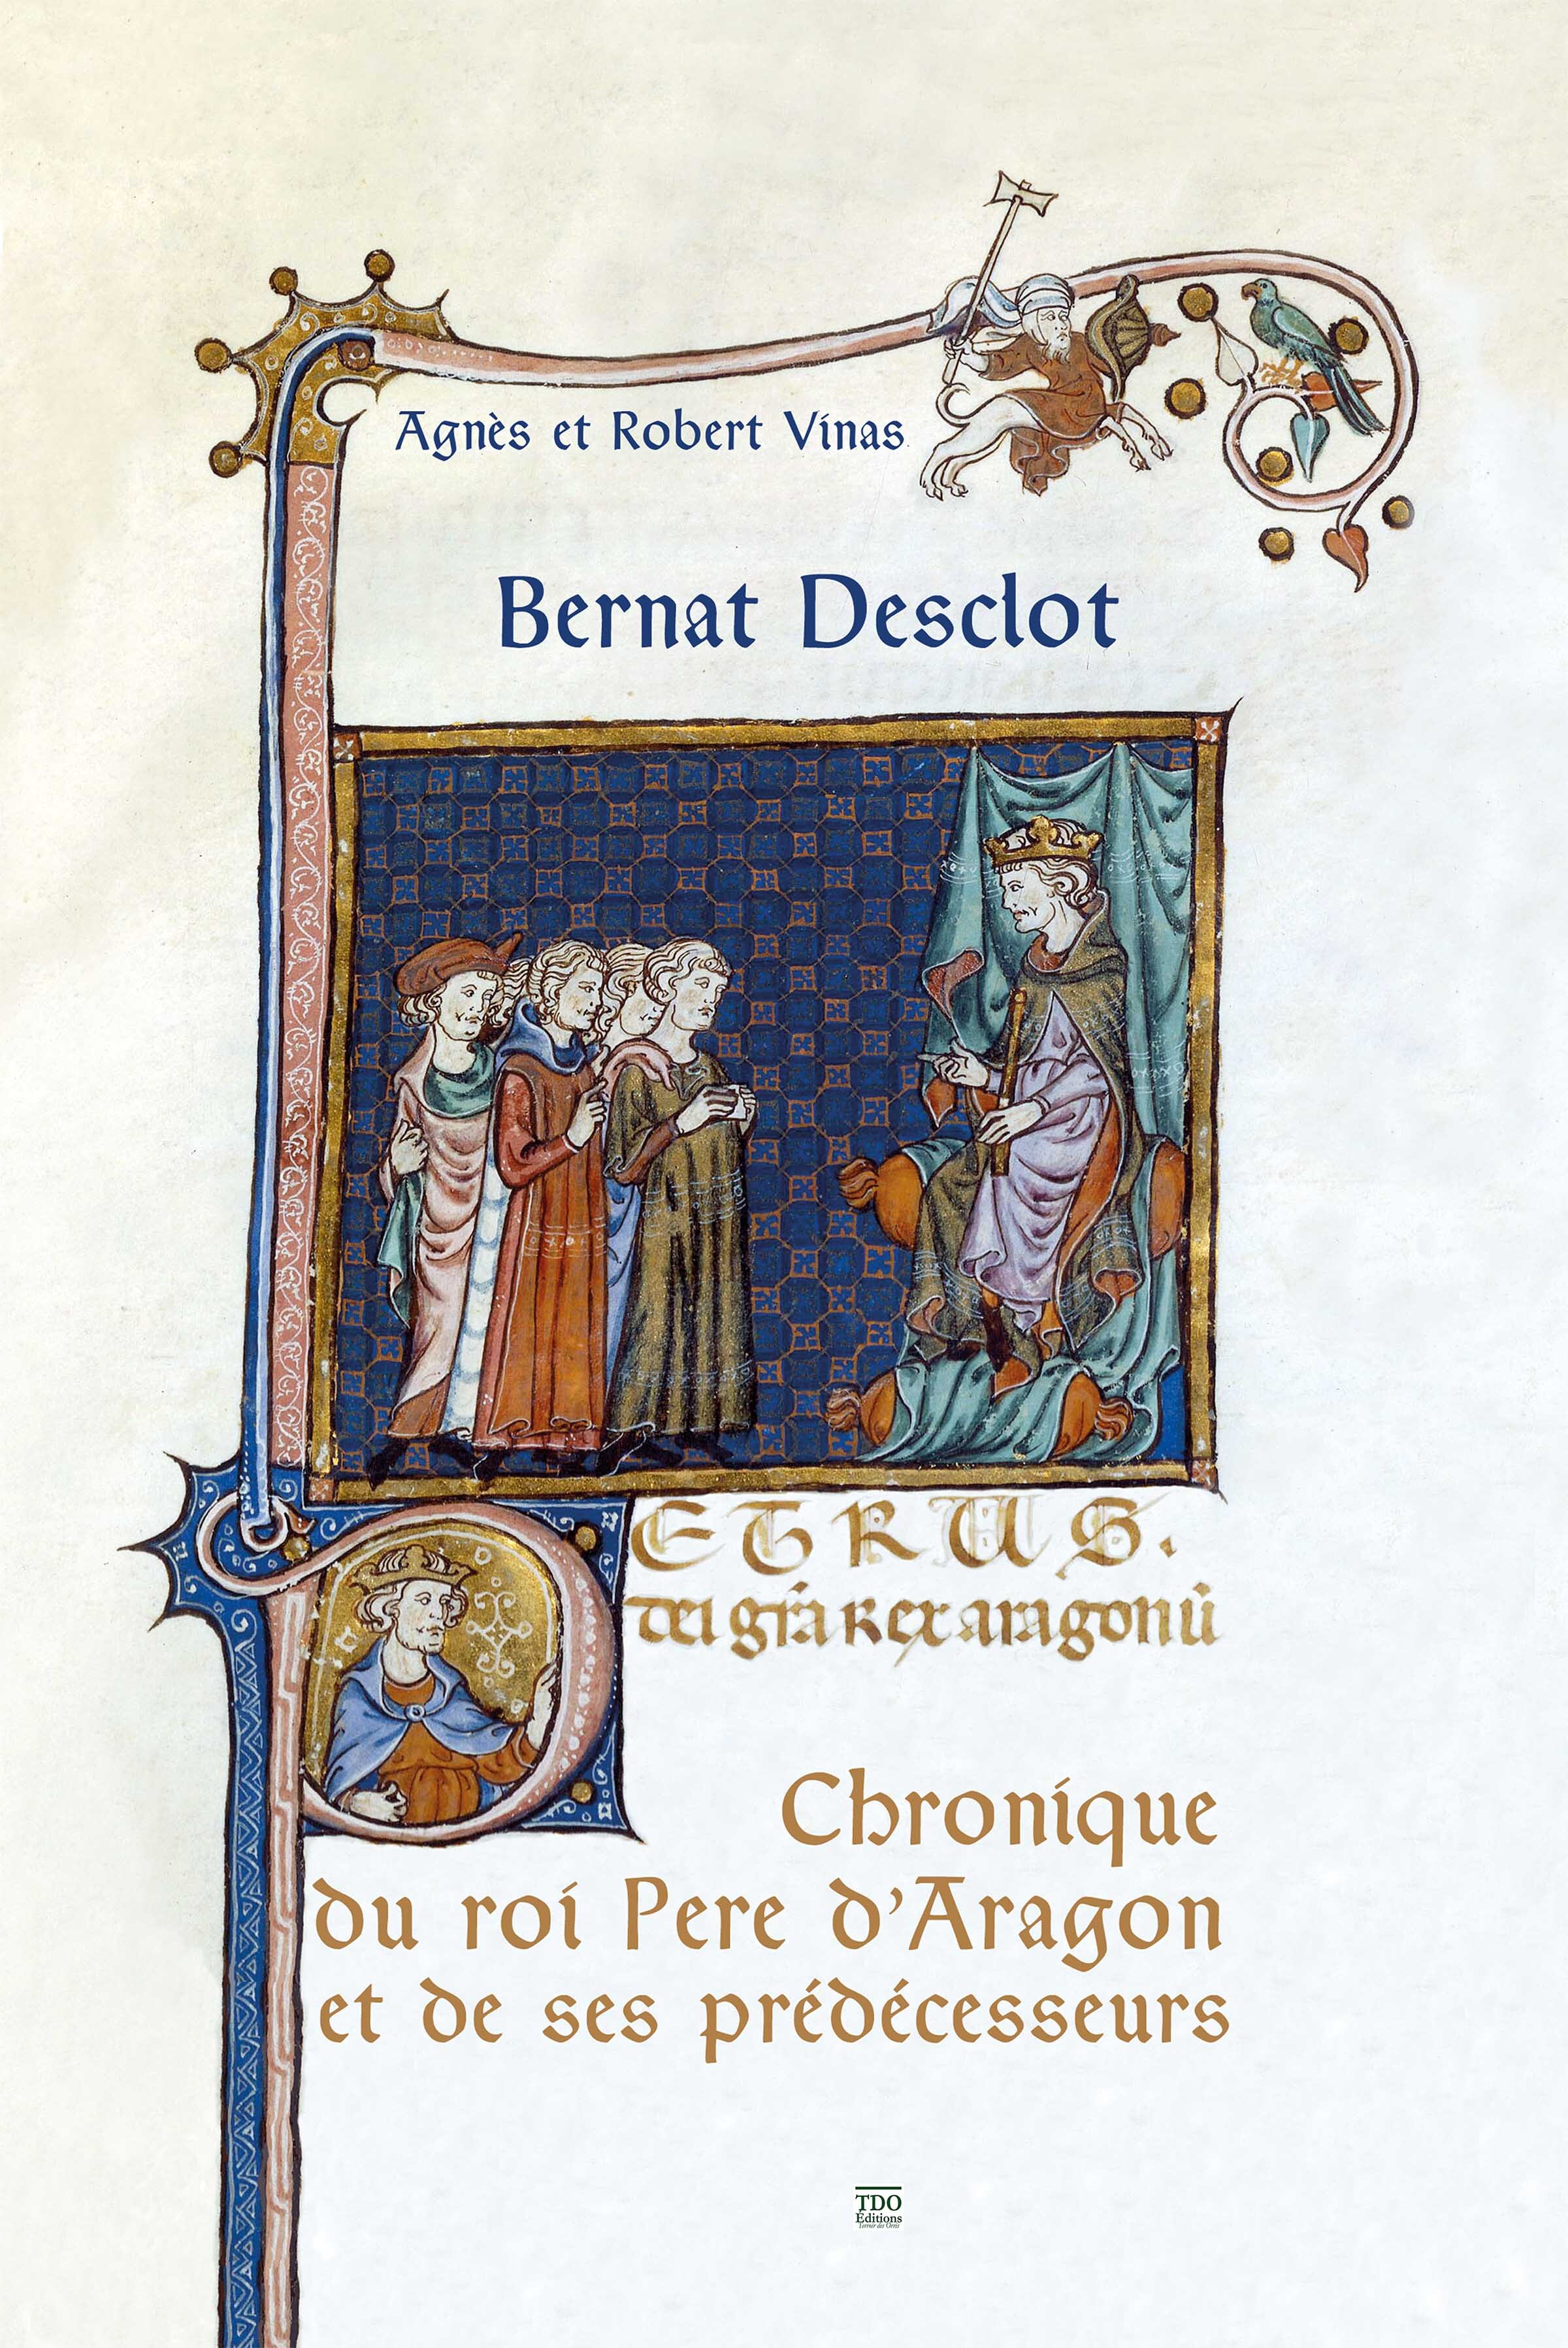 Agnès et Robert Vinas
Bernat Desclot
ETRUS.
dei gr̃a Rex aragonũ
Chronique
du roi Pere d'Aragon
et de ses prédécesseurs
TDO
Éditions
Terroir des Ores